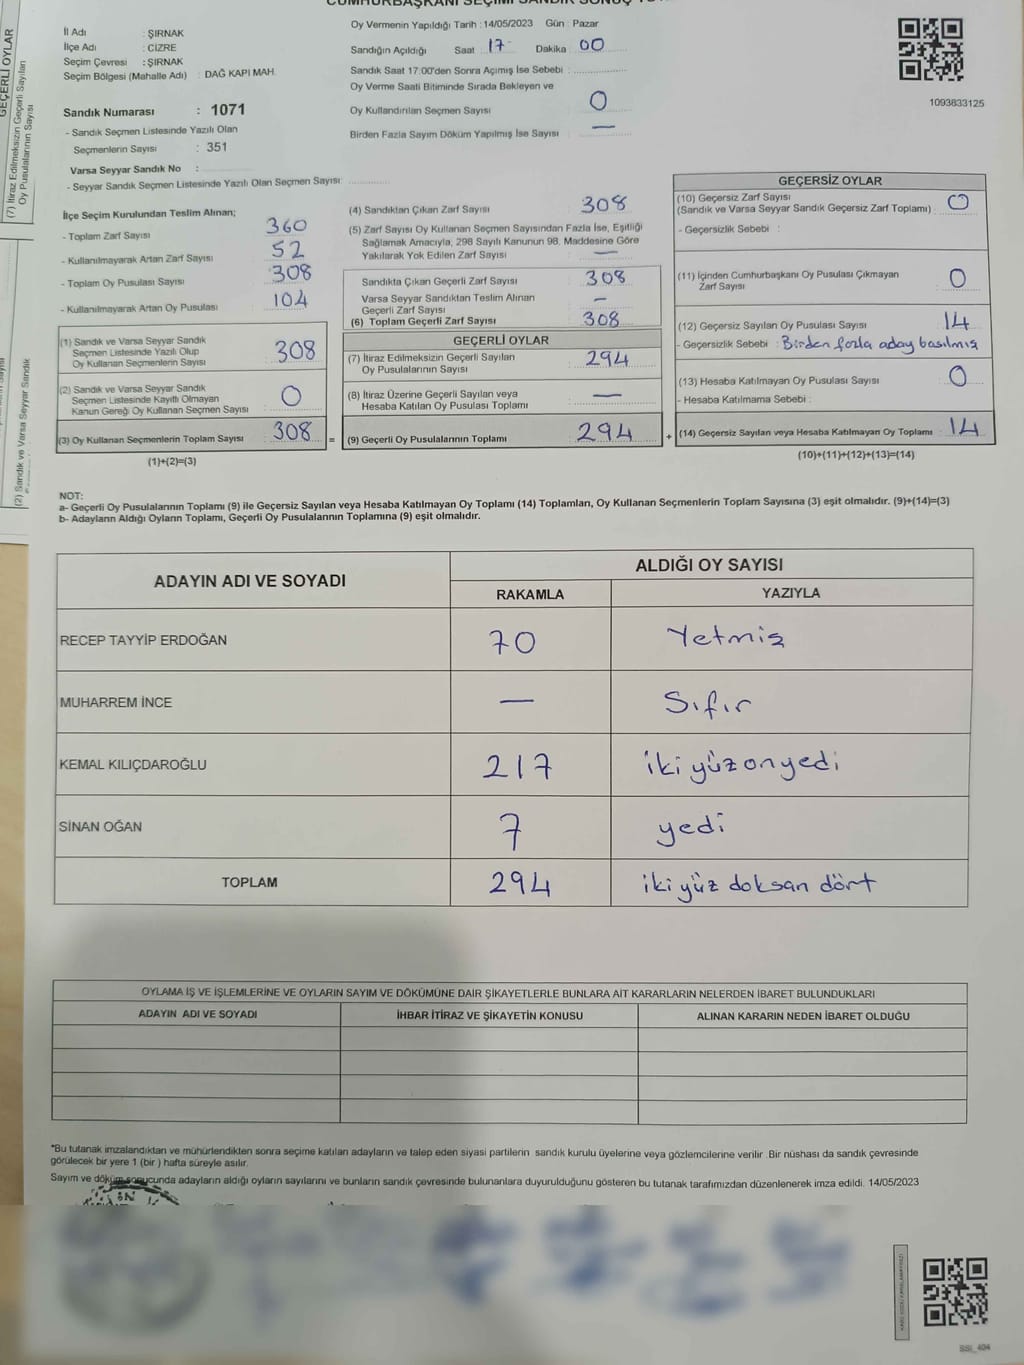 CUMHURBAŞKANI SEÇİMİ SANDIK SONUÇ
İl Adı : ŞIRNAK
İlçe Adı : CİZRE
Seçim Çevresi : ŞIRNAK
Seçim Bölgesi (Mahalle Adı) : DAĞ KAPI MAH.
Sandık Numarası : 1071
- Sandık Seçmen Listesinde Yazılı Olan
Seçmenlerin Sayısı : 351
Varsa Seyyar Sandık No :
- Seyyar Sandık Seçmen Listesinde Yazılı Olan Seçmen Sayısı:
Oy Vermenin Yapıldığı Tarih : 14/05/2023 Gün : Pazar
Sandığın Açıldığı Saat 17 Dakika 00
Sandık Saat 17:00'den Sonra Açımış İse Sebebi :
Oy Verme Saati Bitiminde Sırada Bekleyen ve
Oy Kullandırılan Seçmen Sayısı 0
Birden Fazla Sayım Döküm Yapılmış İse Sayısı —
1093833125
İlçe Seçim Kurulundan Teslim Alınan;
- Toplam Zarf Sayısı 360
- Kullanılmayarak Artan Zarf Sayısı 52
- Toplam Oy Pusulası Sayısı 308
- Kullanılmayarak Artan Oy Pusulası 104
(1) Sandık ve Varsa Seyyar Sandık
Seçmen Listesinde Yazılı Olup
Oy Kullanan Seçmenlerin Sayısı 308
(2) Sandık ve Varsa Seyyar Sandık
Seçmen Listesinde Kayıtlı Olmayan
Kanun Gereği Oy Kullanan Seçmen Sayısı 0
(3) Oy Kullanan Seçmenlerin Toplam Sayısı 308 =
(1)+(2)=(3)
(4) Sandıktan Çıkan Zarf Sayısı 308
(5) Zarf Sayısı Oy Kullanan Seçmen Sayısından Fazla İse, Eşitliği
Sağlamak Amacıyla, 298 Sayılı Kanunun 98. Maddesine Göre
Yakılarak Yok Edilen Zarf Sayısı —
Sandıkta Çıkan Geçerli Zarf Sayısı 308
Varsa Seyyar Sandıktan Teslim Alınan
Geçerli Zarf Sayısı —
(6) Toplam Geçerli Zarf Sayısı 308
GEÇERLİ OYLAR
(7) İtiraz Edilmeksizin Geçerli Sayılan
Oy Pusulalarının Sayısı 294
(8) İtiraz Üzerine Geçerli Sayılan veya
Hesaba Katılan Oy Pusulası Toplamı —
(9) Geçerli Oy Pusulalarının Toplamı 294 +
GEÇERSİZ OYLAR
(10) Geçersiz Zarf Sayısı
(Sandık ve Varsa Seyyar Sandık Geçersiz Zarf Toplamı) 0
- Geçersizlik Sebebi :
(11) İçinden Cumhurbaşkanı Oy Pusulası Çıkmayan
Zarf Sayısı 0
(12) Geçersiz Sayılan Oy Pusulası Sayısı 14
- Geçersizlik Sebebi : Birden fazla aday basılmış
(13) Hesaba Katılmayan Oy Pusulası Sayısı 0
- Hesaba Katılmama Sebebi :
(14) Geçersiz Sayılan veya Hesaba Katılmayan Oy Toplamı 14
(10)+(11)+(12)+(13)=(14)
NOT:
a- Geçerli Oy Pusulalarının Toplamı (9) ile Geçersiz Sayılan veya Hesaba Katılmayan Oy Toplamı (14) Toplamları, Oy Kullanan Seçmenlerin Toplam Sayısına (3) eşit olmalıdır. (9)+(14)=(3)
b- Adayların Aldığı Oyların Toplamı, Geçerli Oy Pusulalarının Toplamına (9) eşit olmalıdır.
ADAYIN ADI VE SOYADI
ALDIĞI OY SAYISI
RAKAMLA YAZIYLA
RECEP TAYYİP ERDOĞAN 70 Yetmiş
MUHARREM İNCE — Sıfır
KEMAL KILIÇDAROĞLU 217 iki yüz on yedi
SİNAN OĞAN 7 yedi
TOPLAM 294 iki yüz doksan dört
OYLAMA İŞ VE İŞLEMLERİNE VE OYLARIN SAYIM VE DÖKÜMÜNE DAİR ŞİKAYETLERLE BUNLARA AİT KARARLARIN NELERDEN İBARET BULUNDUKLARI
ADAYIN ADI VE SOYADI İHBAR İTİRAZ VE ŞİKAYETİN KONUSU ALINAN KARARIN NEDEN İBARET OLDUĞU
*Bu tutanak imzalandıktan ve mühürlendikten sonra seçime katılan adayların ve talep eden siyasi partilerin sandık kurulu üyelerine veya gözlemcilerine verilir. Bir nüshası da sandık çevresinde
görülecek bir yere 1 (bir ) hafta süreyle asılır.
Sayım ve döküm sonucunda adayların aldığı oyların sayılarını ve bunların sandık çevresinde bulunanlara duyurulduğunu gösteren bu tutanak tarafımızdan düzenlenerek imza edildi. 14/05/2023
(7) İtiraz Edilmeksizin Geçerli Sayılan
Oy Pusulalarının Sayısı
GEÇERLİ OYLAR
(2) Sandık ve Varsa Seyyar Sandık